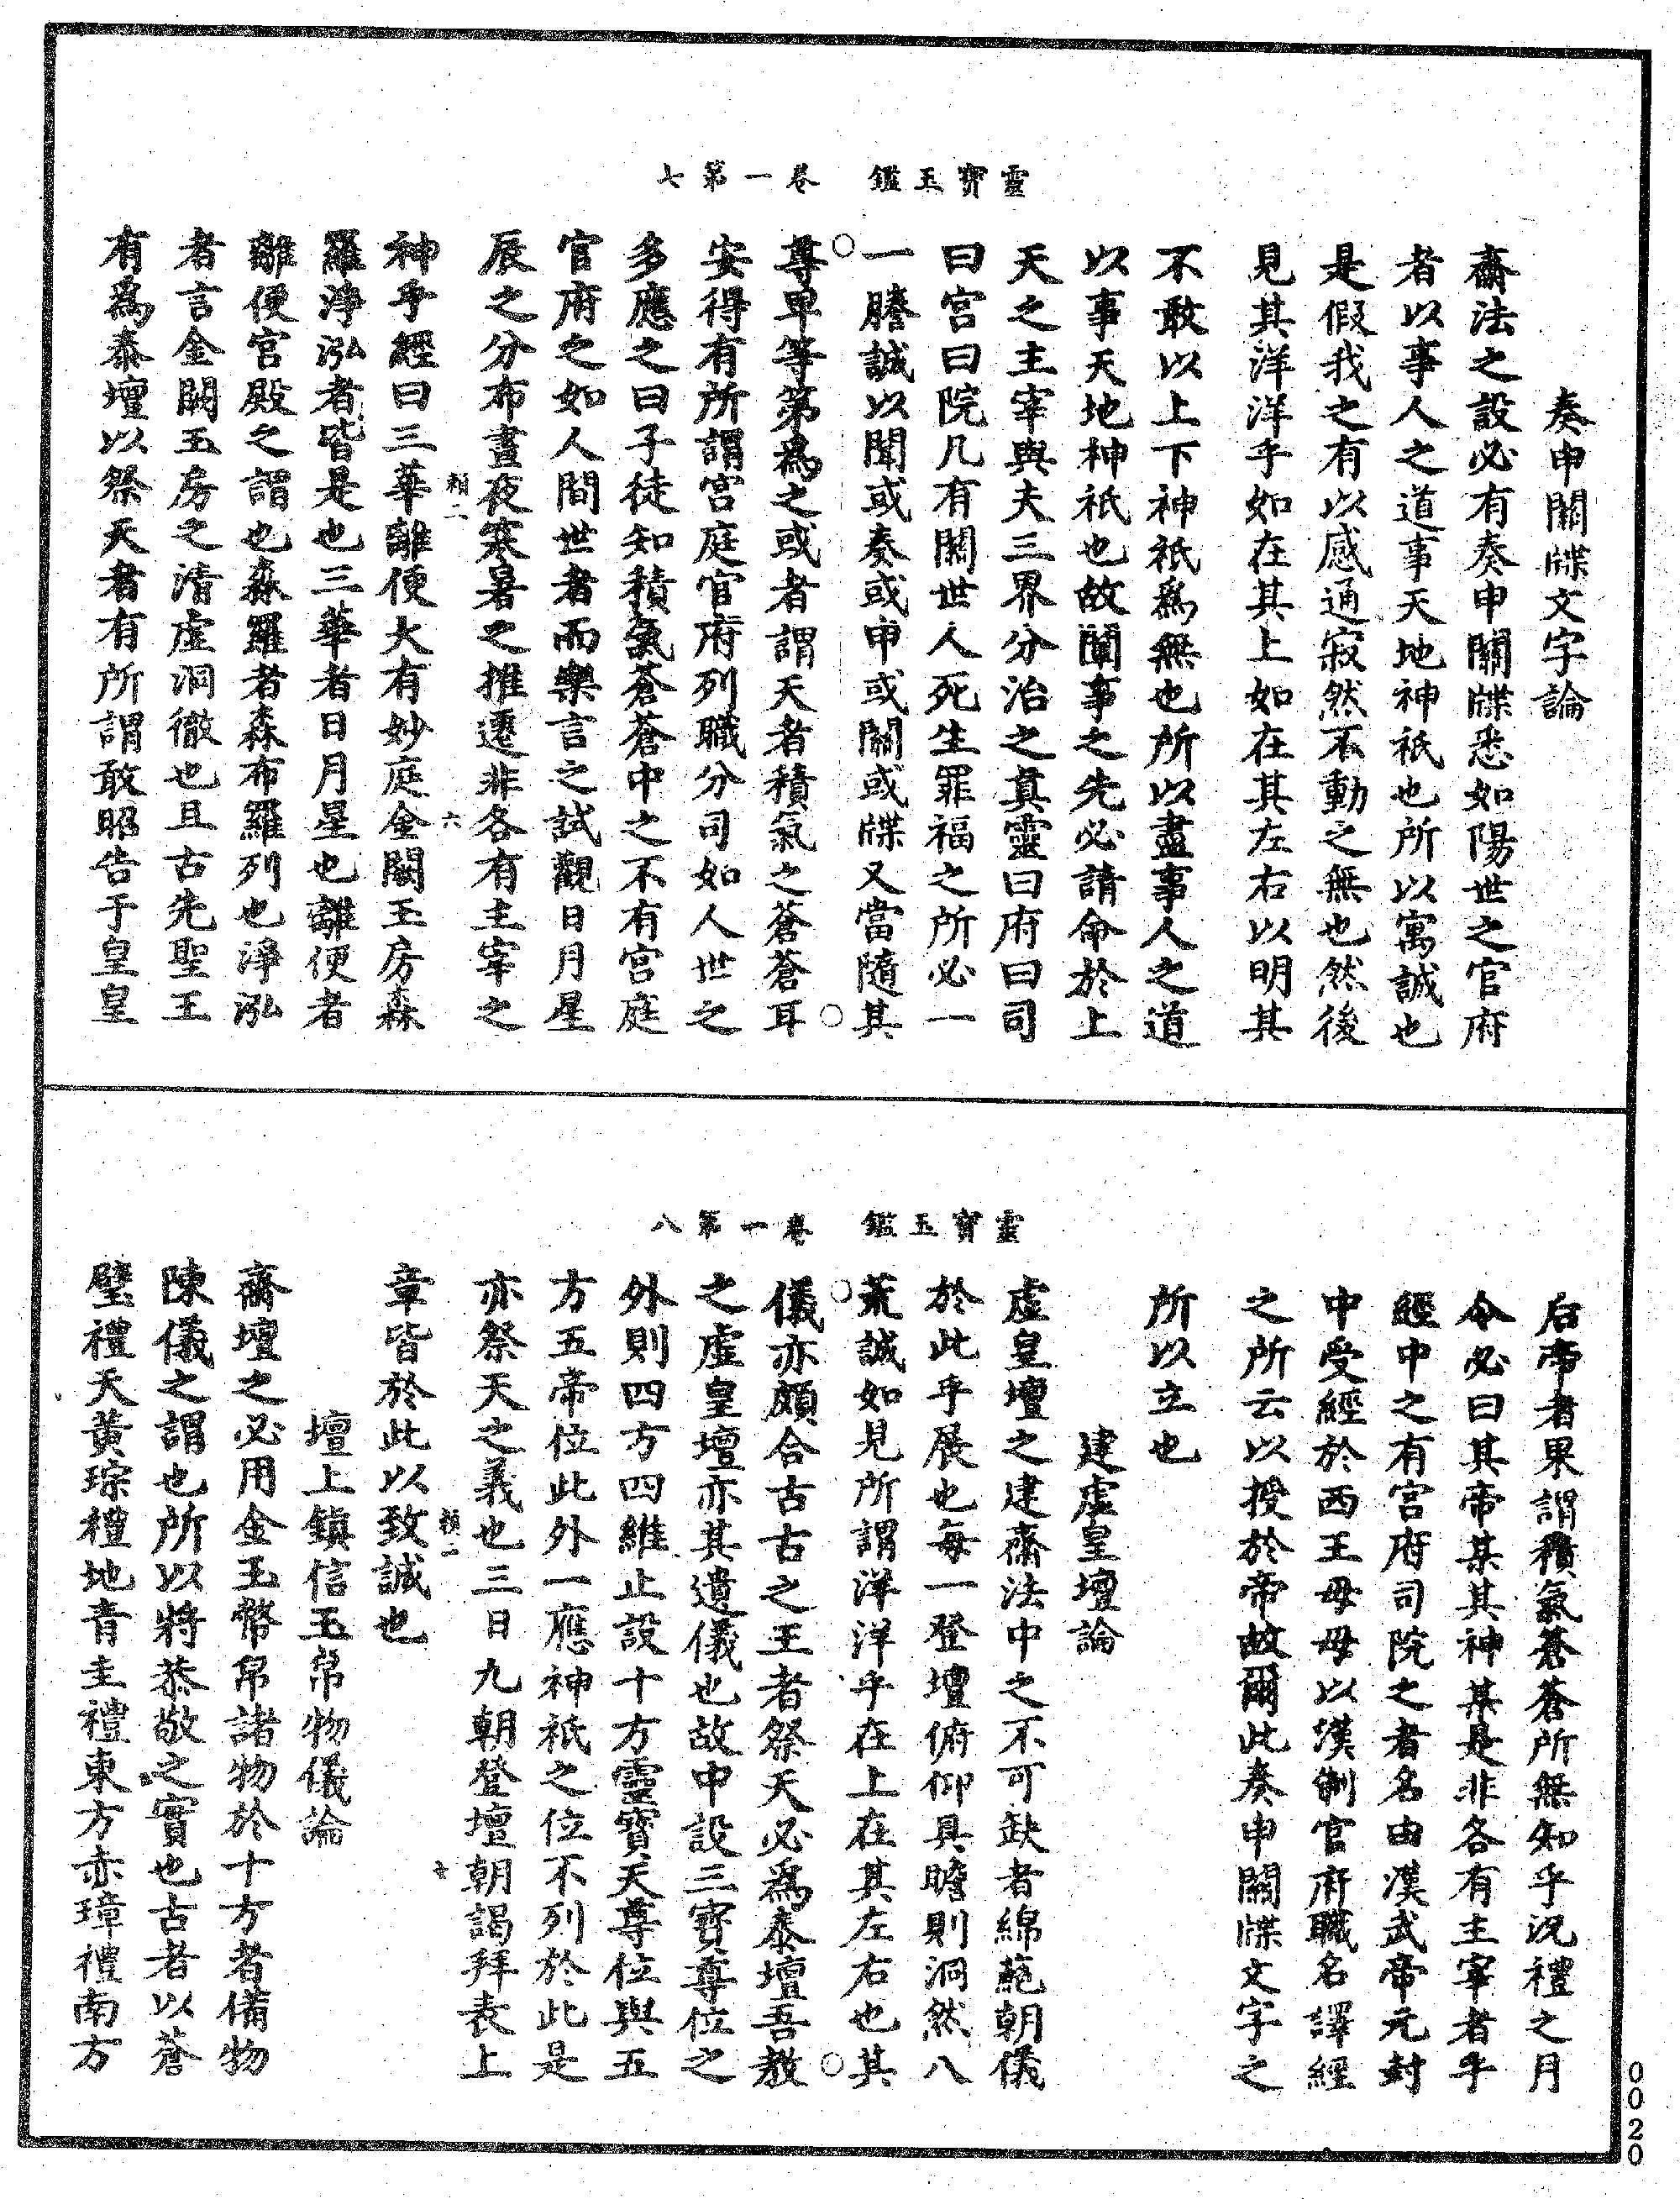 靈寶玉鑑　卷一第七
奏申關牒文字論
齋法之設必有奏申關牒悉如陽世之官府
者以事人之道事天地神祇也所以寓誠也
是假我之有以感通寂然不動之無也然後
見其洋洋乎如在其上如在其左右以明其
不敢以上下神祇爲無也所以盡事人之道
以事天地神祇也故闡事之先必請命於上
天之主宰與夫三界分治之真靈曰府曰司
曰宮曰院凡有關世人死生罪福之所必一
一牋誠以聞或奏或申或關或牒又當隨其
尊卑等第爲之或者謂天者積氣之蒼蒼耳
安得有所謂宮庭官府列職分司如人世之
多應之曰子徒知積氣蒼蒼中之不有宮庭
官府之如人間世者而樂言之試觀日月星
辰之分布晝夜寒暑之推遷非各有主宰之
神乎經曰三華離便大有妙庭金闕玉房森
羅淨泓者皆是也三華者日月星也離便者
離便宮殿之謂也森羅者森布羅列也淨泓
者言金闕玉房之清虛洞徹也且古先聖王
有爲泰壇以祭天者有所謂敢昭告于皇皇
賴二
六
靈寶玉鑑　卷一第八
后帝者果謂積氣蒼蒼所無知乎況禮之月
令必曰其帝某其神某是非各有主宰者乎
經中之有宮府司院之者名由漢武帝元封
中受經於西王母母以漢制官府職名譯經
之所云以授於帝故爾此奏申關牒文字之
所以立也
建虛皇壇論
虛皇壇之建齋法中之不可缺者綿蕝朝儀
於此乎展也每一登壇俯仰具瞻則洞然八
荒誠如見所謂洋洋乎在上在其左右也其
儀亦頗合古古之王者祭天必爲泰壇吾教
之虛皇壇亦其遺儀也故中設三寶尊位之
外則四方四維止設十方靈寶天尊位與五
方五帝位此外一應神祇之位不列於此是
亦祭天之義也三日九朝登壇朝謁拜表上
章皆於此以致誠也
賴二
七
壇上鎮信玉帛物儀論
齋壇之必用金玉幣帛諸物於十方者備物
陳儀之謂也所以將恭敬之實也古者以蒼
璧禮天黃琮禮地青圭禮東方赤璋禮南方
0020